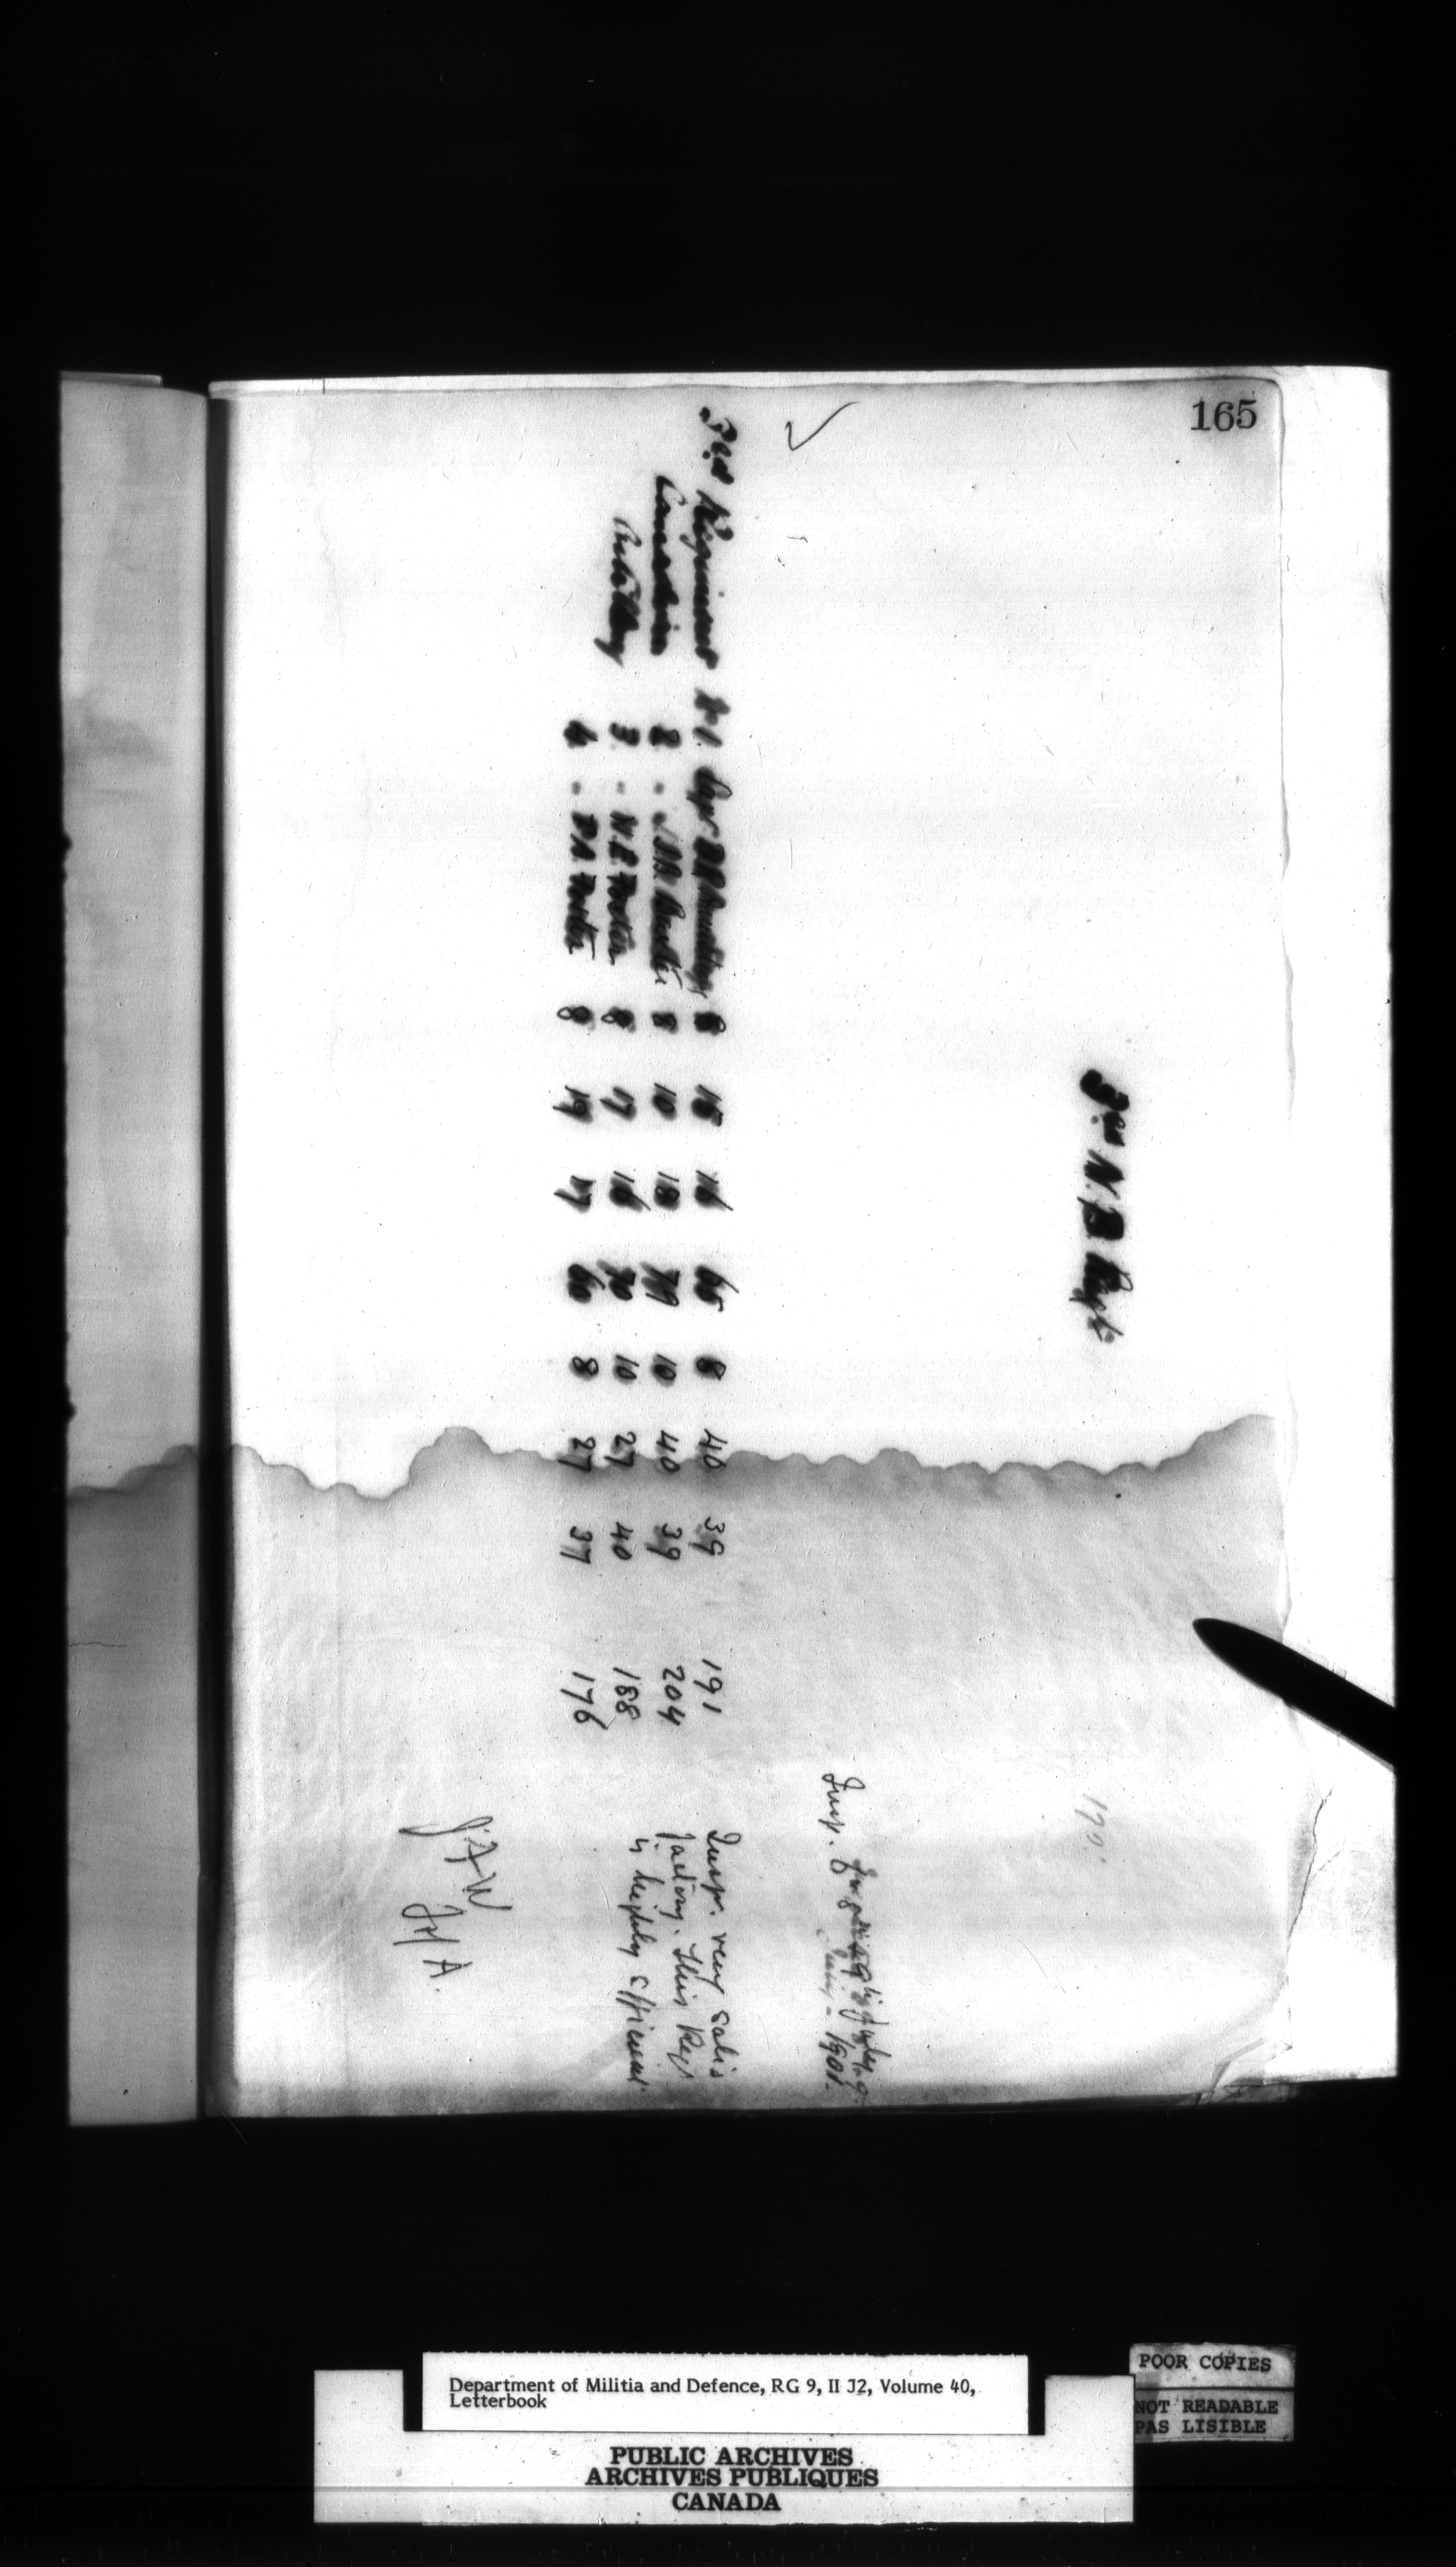 165
3rd N.B. Regt
170.
Insp.
July - 1901.
3rd Regiment No 1. Capt 8 15 16 65 8 40 39 191 Insp. very satis
Canadian 2 - 8 10 18 79 10 40 39 204 factory. This Regt
Artillery 3 - 8 17 16 70 10 27 40 188 is highly efficient.
4 - 8 19 17 60 8 27 37 176
Department of Militia and Defence, RG 9, II J2, Volume 40,
Letterbook
POOR COPIES
NOT READABLE
PAS LISIBLE
PUBLIC ARCHIVES
ARCHIVES PUBLIQUES
CANADA